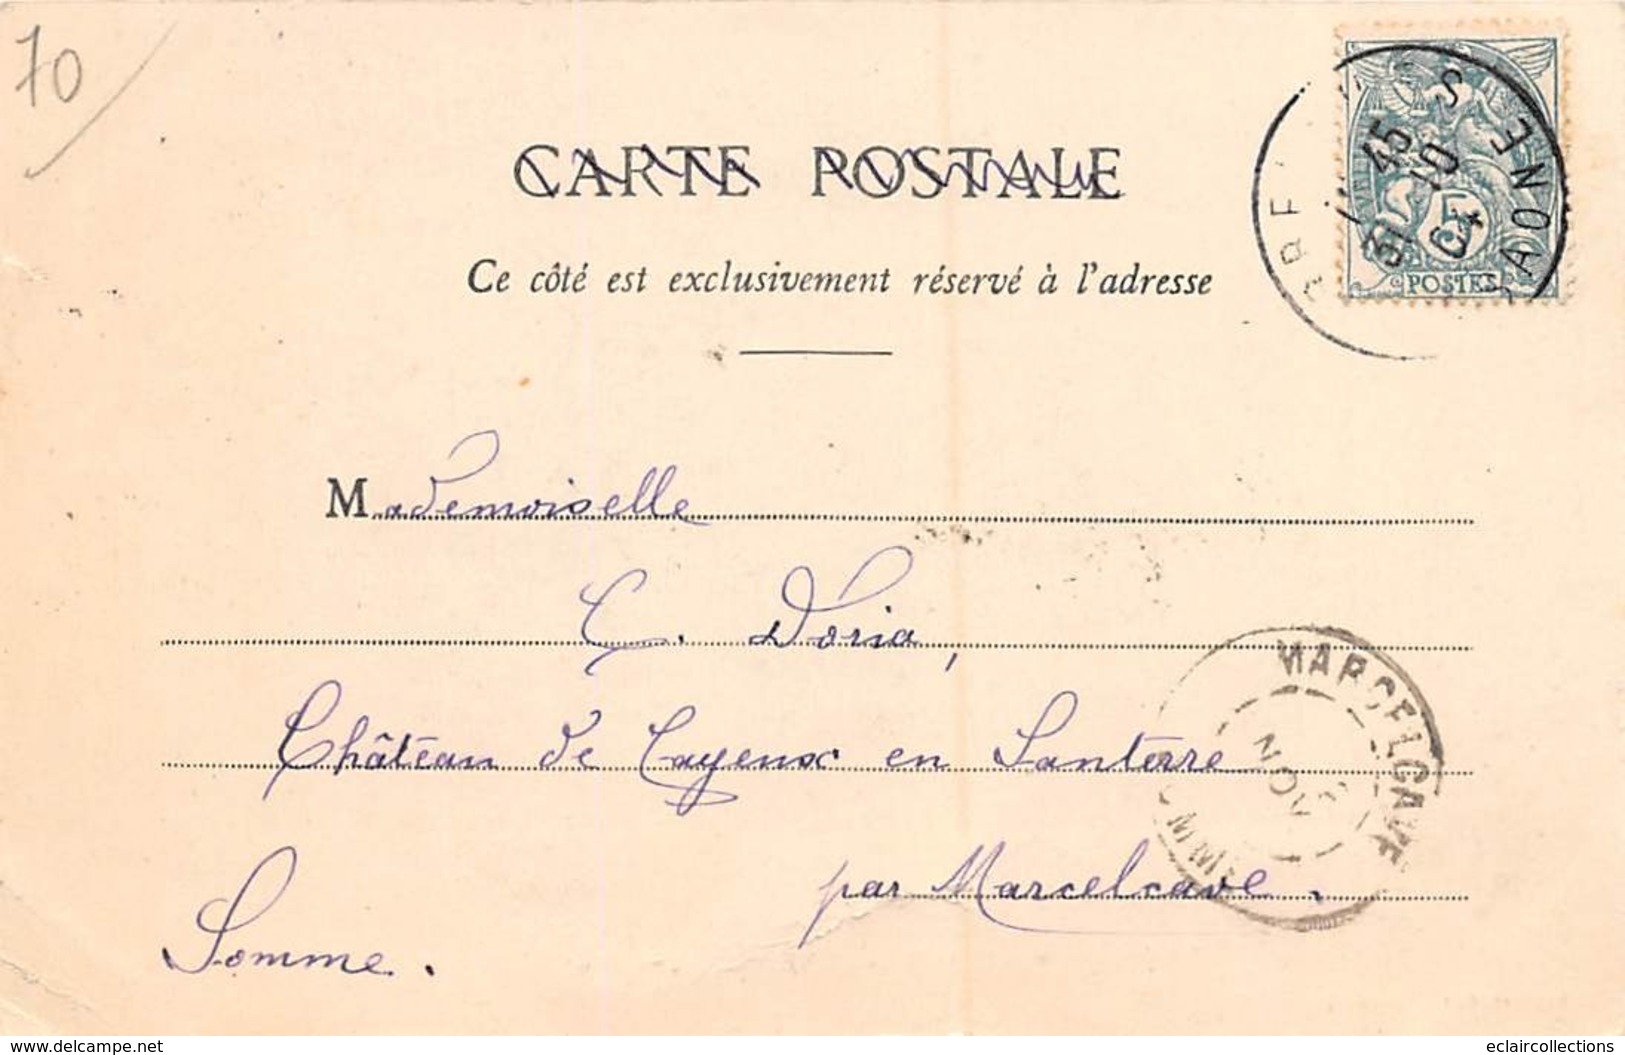 70
CARTE POSTALE
Ce côté est exclusivement réservé à l'adresse
45
31 10
04
SAONE
5
POSTES
Mademoiselle
C. Doria,
Château de Cayeux en Santerre
par Marcelcave.
Somme.
MARCELCAVE
NOV
delcampe.net
eclaircollections